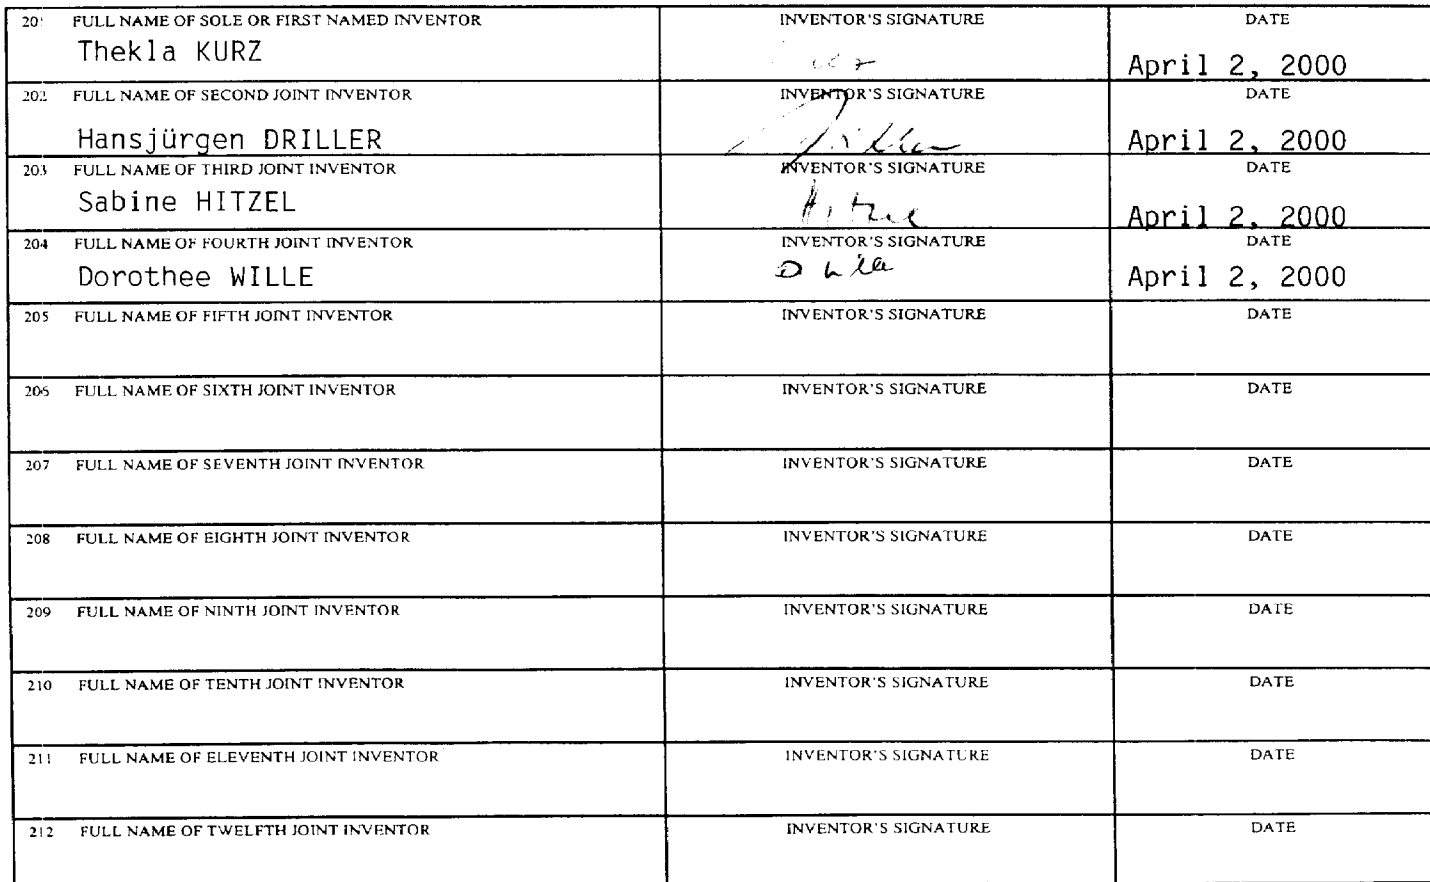 201 FULL NAME OF SOLE OR FIRST NAMED INVENTOR INVENTOR'S SIGNATURE DATE
Thekla KURZ April 2, 2000
202 FULL NAME OF SECOND JOINT INVENTOR INVENTOR'S SIGNATURE DATE
Hansjürgen DRILLER Driller April 2, 2000
203 FULL NAME OF THIRD JOINT INVENTOR INVENTOR'S SIGNATURE DATE
Sabine HITZEL Hitzel April 2, 2000
204 FULL NAME OF FOURTH JOINT INVENTOR INVENTOR'S SIGNATURE DATE
Dorothee WILLE D Wille April 2, 2000
205 FULL NAME OF FIFTH JOINT INVENTOR INVENTOR'S SIGNATURE DATE
206 FULL NAME OF SIXTH JOINT INVENTOR INVENTOR'S SIGNATURE DATE
207 FULL NAME OF SEVENTH JOINT INVENTOR INVENTOR'S SIGNATURE DATE
208 FULL NAME OF EIGHTH JOINT INVENTOR INVENTOR'S SIGNATURE DATE
209 FULL NAME OF NINTH JOINT INVENTOR INVENTOR'S SIGNATURE DATE
210 FULL NAME OF TENTH JOINT INVENTOR INVENTOR'S SIGNATURE DATE
211 FULL NAME OF ELEVENTH JOINT INVENTOR INVENTOR'S SIGNATURE DATE
212 FULL NAME OF TWELFTH JOINT INVENTOR INVENTOR'S SIGNATURE DATE